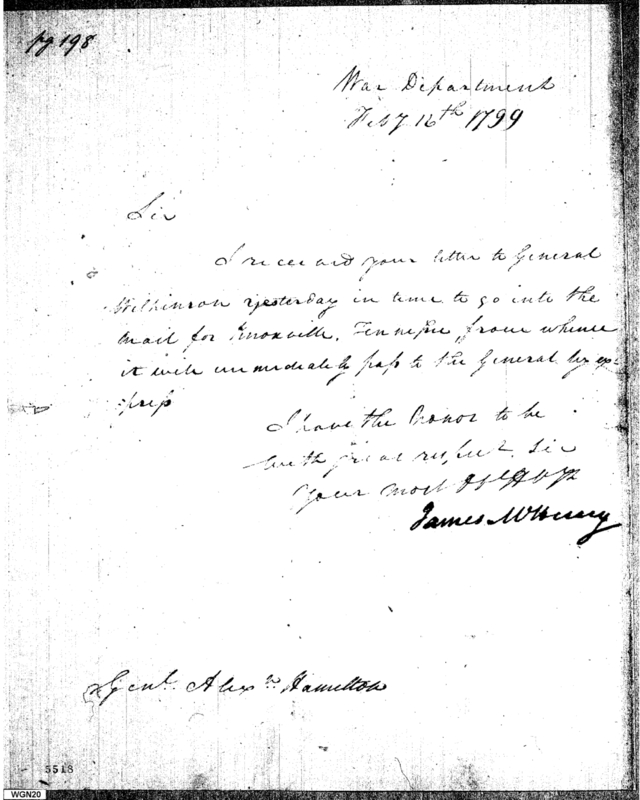 pg 198
War Department
Feby. 16th 1799
Sir
I received your letter to General
Wilkinson yesterday in time to go into the
mail for Knoxville, Tennessee, from whence
it will immediately pass to the General by ex-
press
I have the honor to be
with great respect, Sir
Your most Obt Hble
James McHenry
Genl. Alexr. Hamilton
5513
WGN20